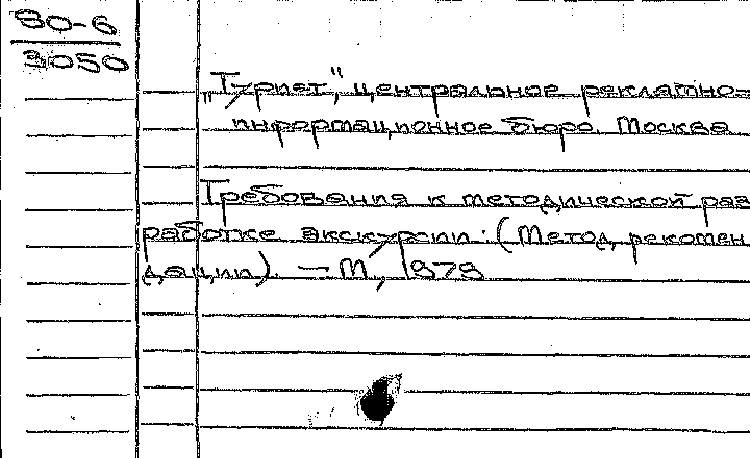 80-6
3050
„Турист", центральное рекламно-
информационное бюро. Москва
Требования к методической раз
работке экскурсии: (Метод, рекомен
дации). — М, 1979